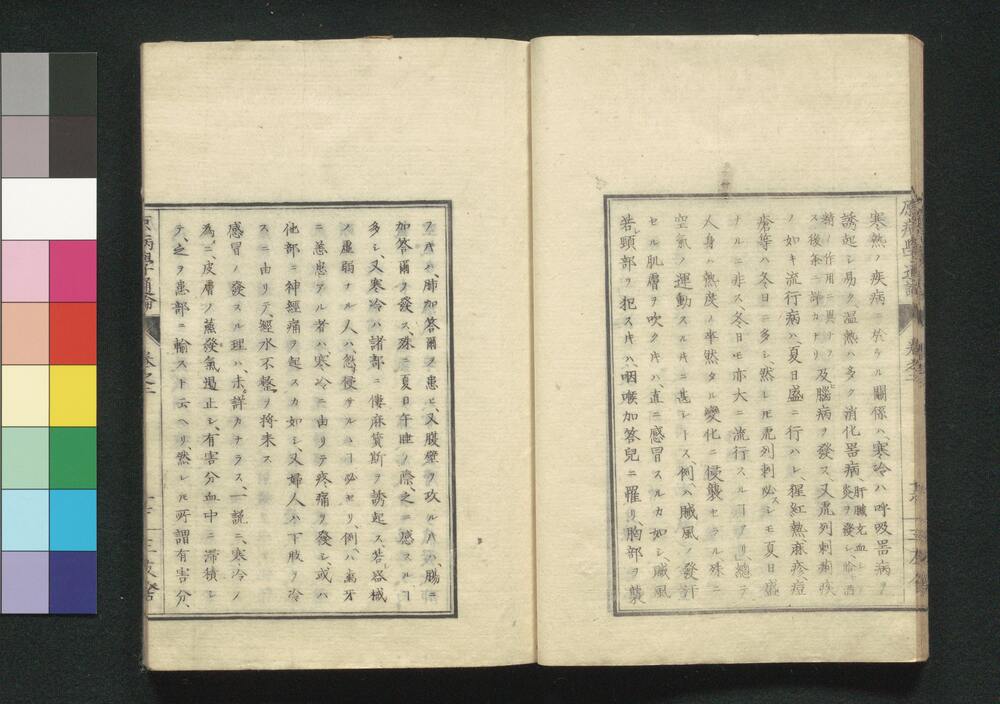 寒熱ノ疾病ニ於ケル關係ハ、寒冷ハ呼吸器病ヲ
誘起シ易ク温熱ハ多ク消化器病、肝臓充血シ炎ヲ發シ
類ノ作用ニ異ナラス後条ニ詳カナリ及腦病ヲ發ス、又虎列刺痢疾
ノ如キ流行病ハ、夏日盛ニ行ハレ、猩紅熱麻疹、痘
瘡等ハ冬日ニ多シ、然レ𪜈虎列刺必スシモ夏日盛
ナルニ非ス冬日モ亦大ニ流行スルヿアリ、總テ
人身ハ熱度ノ卒然タル變化ニ侵襲セラル殊ニ
空氣ノ運動スル𪜈ニ甚シトス、例ハ賊風ノ發汗
セル肌膚ヲ吹クキハ、直ニ感冒スルカ如シ、賊風
若シ頸部ヲ犯スキハ咽喉加答兒ニ罹リ、胸部ヲ襲
フキハ、肺加答爾ヲ患ヒ、又腹壁ヲ攻ルキハ腸ニ
加答爾ヲ發ス、殊ニ夏日午睡ノ際之ニ感スルヿ
多シ、又寒冷ハ諸部ニ僂麻質斯ヲ誘起ス、若シ器械
ノ虚弱ナル人ハ、忽侵サルヽヿ必セリ、例ハ齲牙
ニ患アル者ハ寒冷ニ由リテ疼痛ヲ發シ、或ハ
他部ニ神經痛ヲ起スカ如シ、又婦人ハ下肢ヲ冷
スニ由リテ、經水不整ヲ將来ス
感冒ノ發スル理ハ、未タ詳カナラス、一説ニ、寒冷ノ
為ニ、皮膚ノ蒸發氣遏止シ、有害分血中ニ滞積シ
テ、之ヲ患部ニ輸スト云ヘリ、然レ𪜈所謂有害分、
原病學通論
巻之二